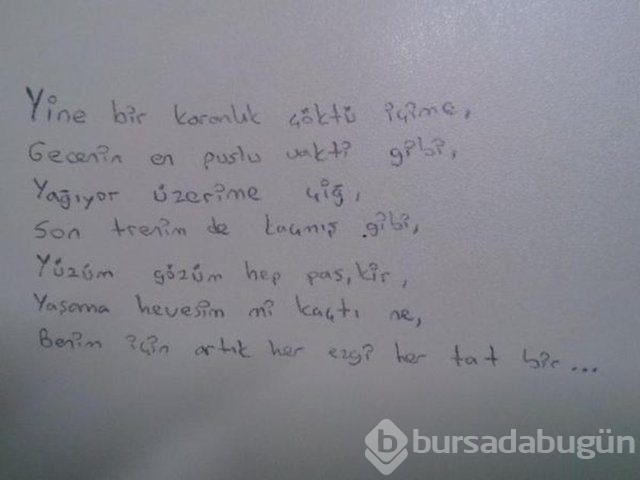 Yine bir karanlık çöktü içime,
Gecenin en puslu vakti gibi,
Yağıyor üzerime çiğ,
Son trenim de kaçmış gibi,
Yüzüm gözüm hep pas, kir,
Yaşama hevesim mi kaçtı ne,
Benim için artık her ezgi her tat bir...
bursadabugün